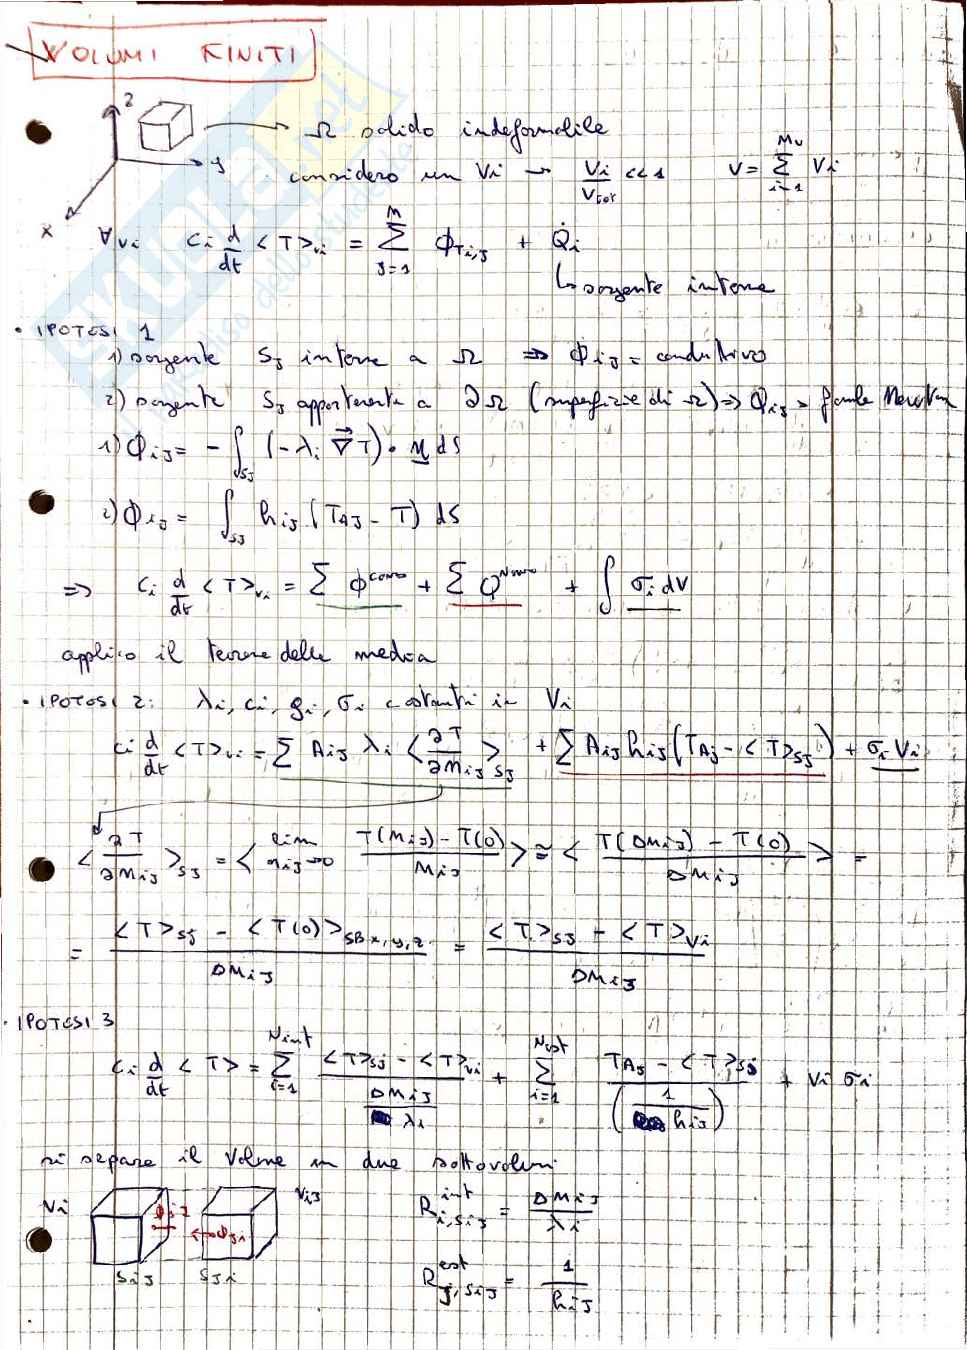 VOLUMI FINITI
z
y
x
Ω solido indeformabile
considero un Vi → Vi/Vtot << 1   V = Σ_{i=1}^{Mv} Vi
∀vi   Ci d/dt <T>vi = Σ_{J=1}^{M} ϕTi,J + Q̇i
↳ sorgente interna
• IPOTESI 1
1) sorgente SJ interna a Ω ⇒ ϕiJ = conduttivo
2) sorgente SJ appartenente a ∂Ω (superfizie di Ω) ⇒ QiJ =
1) ϕiJ = - ∫SJ (-λi ∇⃗T) • n dS
2) ϕiJ = ∫SJ hiJ (TAJ - T) dS
⇒ Ci d/dt <T>vi = Σ ϕ^cond + Σ Q + ∫ σi dV
applico il teorema della media
• IPOTESI 2: λi, ci, ρi, σi costanti in Vi
Ci d/dt <T>vi = Σ AiJ λi <∂T/∂niJ>SJ + Σ AiJ hiJ (TAJ - <T>SJ) + σi Vi
<∂T/∂niJ>SJ = < lim niJ→0 (T(niJ) - T(0))/niJ > ≅ < (T(ΔniJ) - T(0))/ΔniJ > =
= (<T>SJ - <T(0)>SB x,y,z)/ΔniJ = (<T>SJ - <T>Vi)/ΔniJ
• IPOTESI 3
Ci d/dt <T> = Σ_{i=1}^{Nint} (<T>SJ - <T>vi)/(ΔniJ/λi) + Σ_{i=1}^{Nest} (TAJ - <T>SJ)/(1/hiJ) + Vi σi
si separa il Volume in due sottovolumi
Vi   ViJ
ϕiJ   ϕJi
SiJ   SJi
R^int i,SiJ = ΔniJ/λi
R^est J,SiJ = 1/hiJ